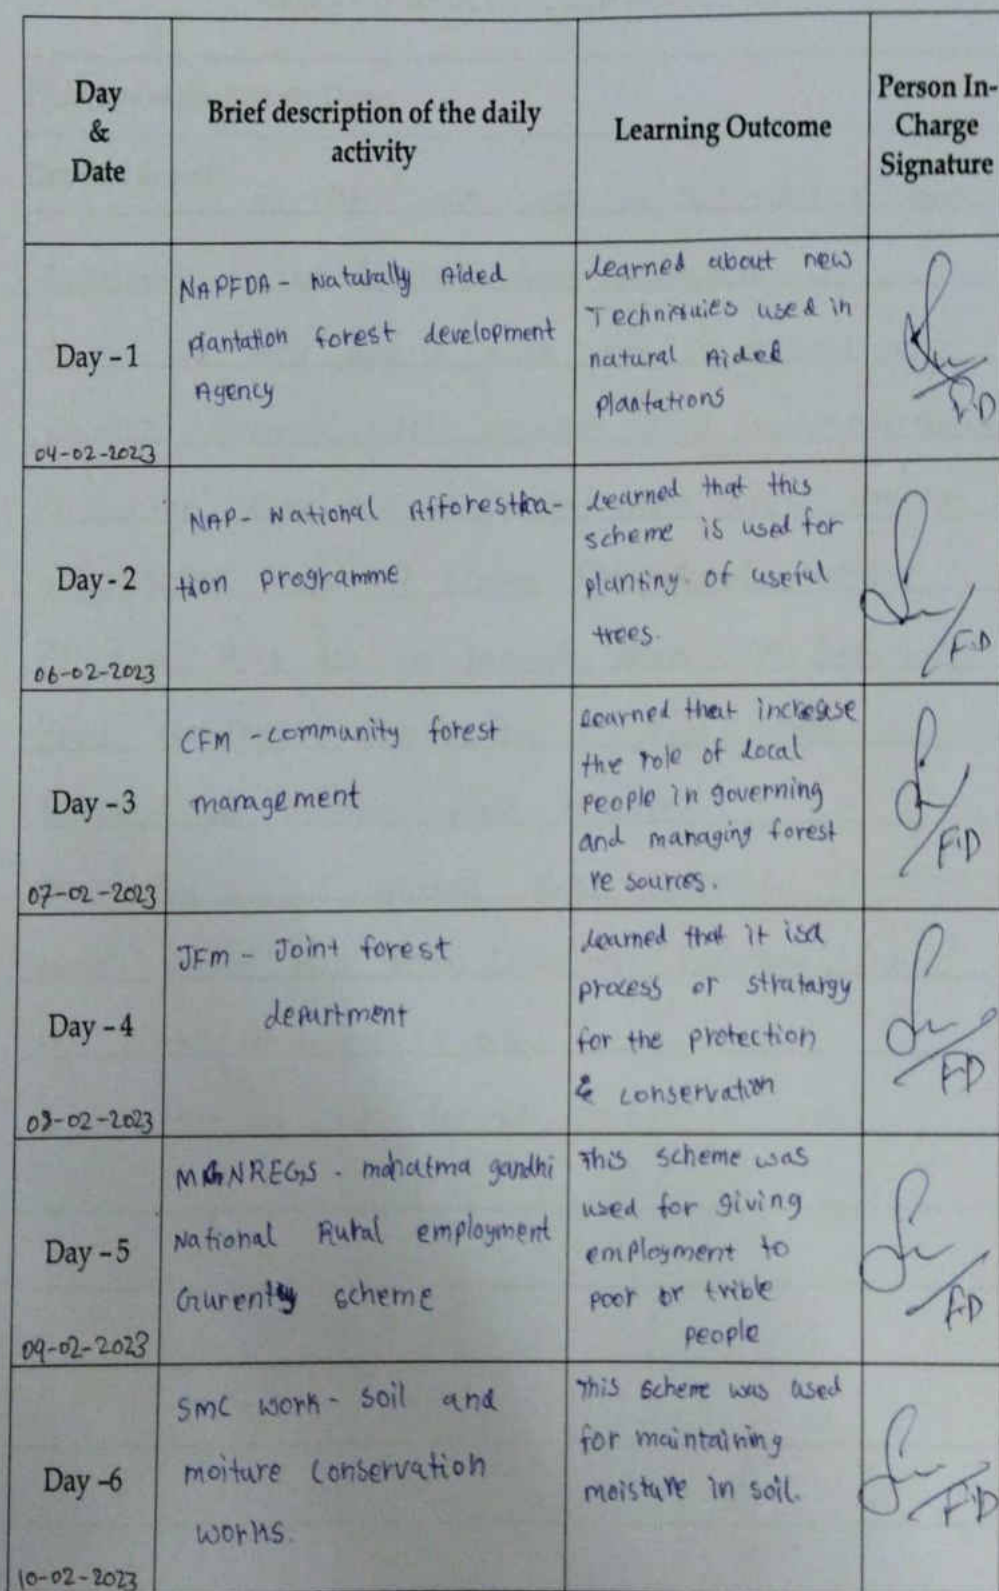 Day
&
Date
Brief description of the daily
activity
Learning Outcome
Person In-
Charge
Signature
Day - 1
04-02-2023
NAPFDA - Naturally Aided
plantation forest development
Agency
Learned about new
Techniquies used in
natural Aided
plantations
F.D
Day - 2
06-02-2023
NAP - National Afforestka-
tion programme
Learned that this
scheme is used for
planting. of useful
trees.
F.D
Day - 3
07-02-2023
CFM - community forest
management
Learned that increase
the role of local
people in governing
and managing forest
re sources.
F.D
Day - 4
08-02-2023
JFM - Joint forest
department
Learned that it is a
process or stratargy
for the protection
& conservation
FD
Day - 5
09-02-2023
MGNREGS - mahatma gandhi
National Rural employment
Gurenty scheme
This scheme was
used for giving
employment to
poor or trible
people
FD
Day -6
10-02-2023
SMC work - soil and
moiture conservation
works.
This scheme was used
for maintaining
moisture in soil.
F.D